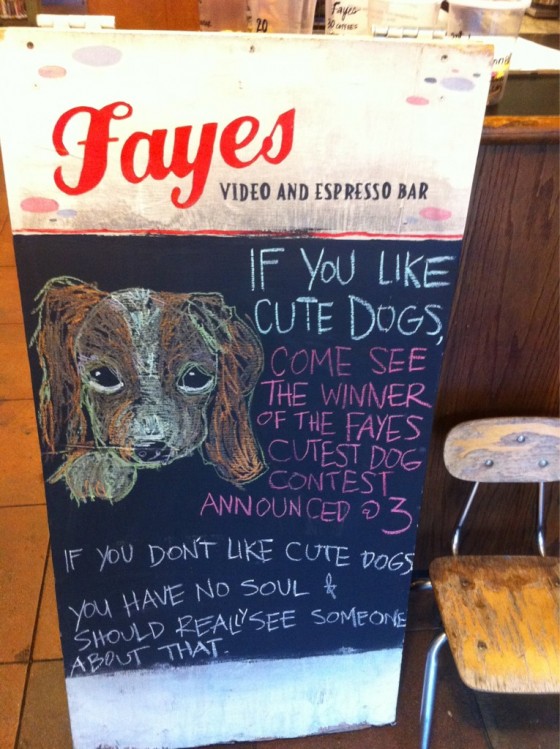 20
Fayes
Fayes
VIDEO AND ESPRESSO BAR
IF YOU LIKE
CUTE DOGS,
COME SEE
THE WINNER
OF THE FAYES
CUTEST DOG
CONTEST
ANNOUNCED @ 3
IF YOU DON'T LIKE CUTE DOGS
YOU HAVE NO SOUL &
SHOULD REALLY SEE SOMEONE
ABOUT THAT.